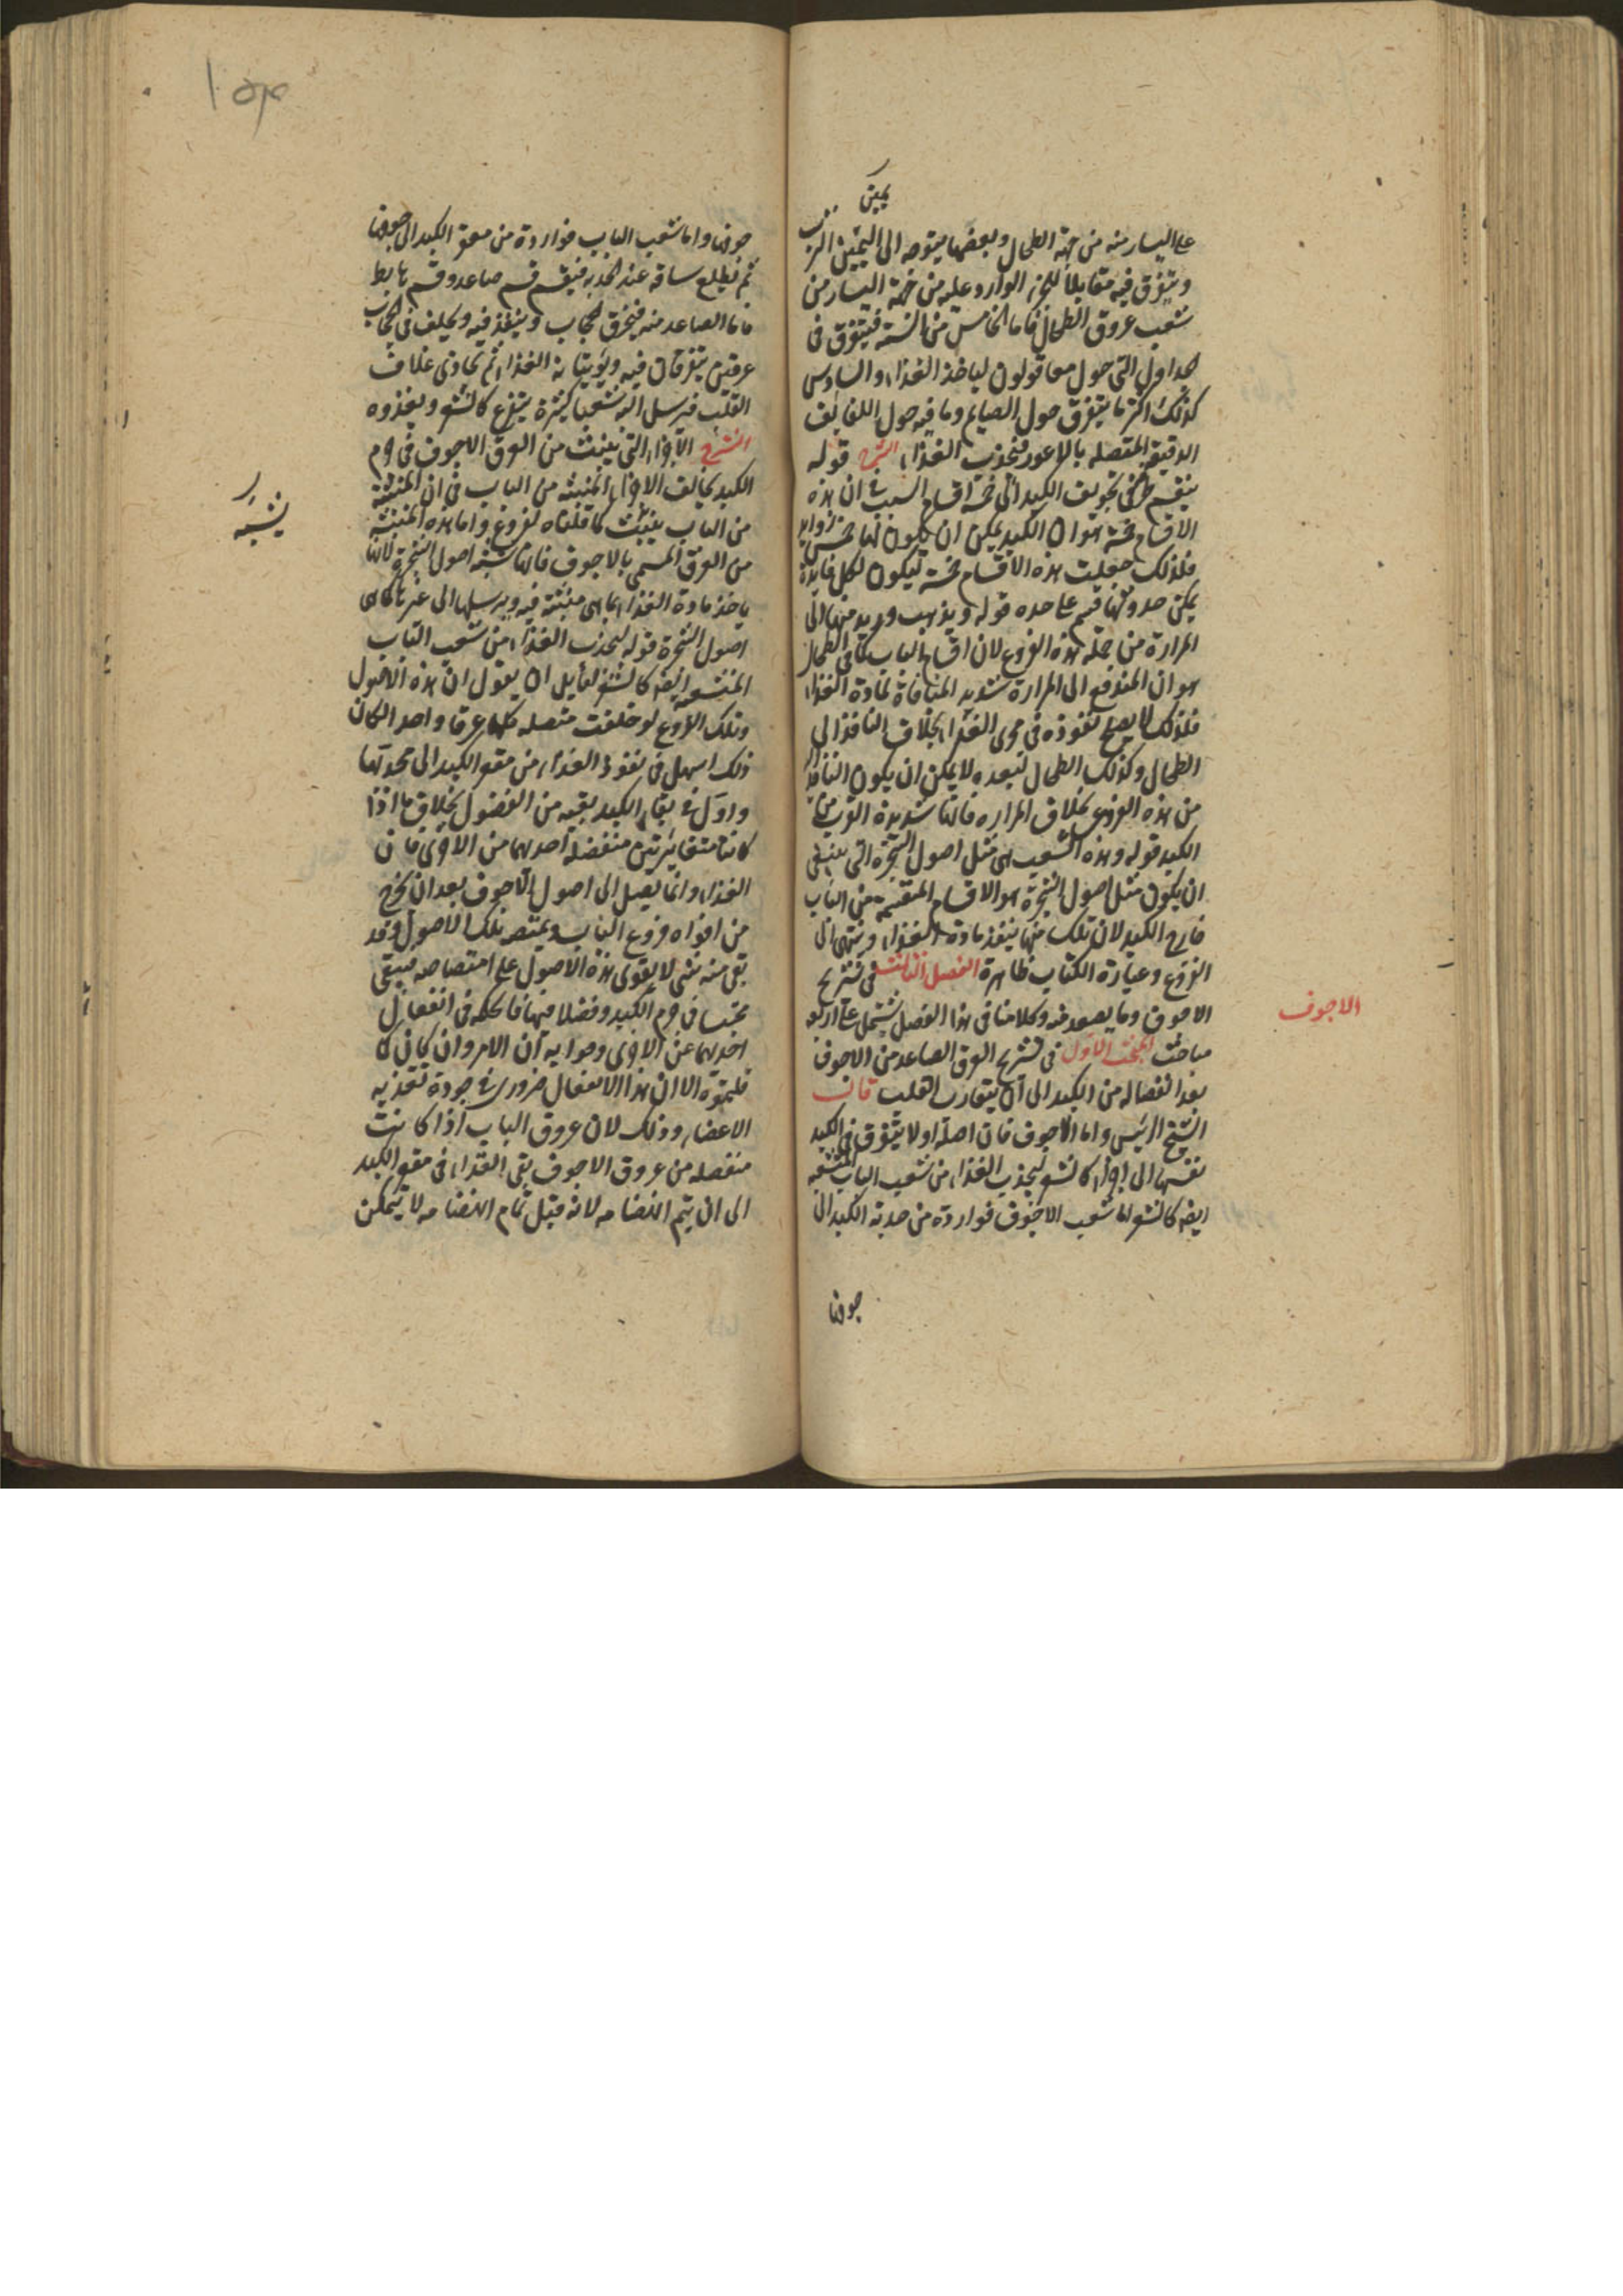 يمين
على اليسار منه من جهة الطحال وبعضها يتوجه الى اليمين الثرب
ويتفرق فيه مقابلا للجزء الوارد عليه من جهة اليسار من
شعب عروق الطحال فاما الخامس من الستة فيتفرق في
الجداول التي حول معا قولون لياخذ الغذاء والسادس
كذلك اكثره يتفرق حول الصايم وما فيه حول اللفايف
الدقيقة المتصله بالاعور فيجذب الغذاء الشرح قوله
ينقسم طرفي تجويف الكبد الى خمسة اقسام السبب في ان هذه
الاقسام خمسة هو ان الكبد يمكن ان يكون لها خمس زوايد
فلذلك جعلت هذه الاقسام خمسة ليكون لكل زايدة
يمكن حدوثها قسم على حده قوله ويذهب وريد منها الى
المرارة من جملة هذه الفروع لان اقسام الباب كما في الطحال
هو ان المندفع الى المرارة شديد المنافاة لمادة الغذاء
فلذلك لا يصلح نفوذه في مجرى الغذاء بخلاف النافذ الى
الطحال وكذلك الطحال لبعده لا يمكن ان يكون النافذ اليه
من هذه الفروع بخلاف المراره فانها شديدة القرب من
الكبد قوله وهذه الشعب هي مثل اصول الشجرة التي ينبغي
ان يكون مثل اصول الشجرة هو الاقسام المنقسمة من الباب
خارج الكبد لان تلك منها ينفذ مادة الغذاء وينتهي الى
الفروع وعبارة الكتاب ظاهرة الفصل الثالث في تشريح
الاجوف وما يصعد منه وكلامنا في هذا الفصل يشتمل على اربعة
الاجوف
مباحث البحث الاول في تشريح العرق الصاعد من الاجوف
بعد انفصاله من الكبد الى ان يتقارب القلب قال
الشيخ الرئيس واما الاجوف فان اصله اولا يتفرق في الكبد
نفسها الى اجزاء كالشعر ليجذب الغذاء من شعب الباب المتشعبه
ايضا كالشعر اما شعب الاجوف فواردة من حدبة الكبد الى
جوفها
جوفها واما شعب الباب فواردة من مقعر الكبد الى جوفها
ثم يطلع ساقه عند الحدبه فينقسم قسم صاعد وقسم هابط
فاما الصاعد منه فيخرق الحجاب وينفذ فيه ويخلف في الحجاب
عرقين يتفرقان فيه ويؤتيانه الغذاء ثم يحاذى غلاف
القلب فيرسل اليه شعبا كثيرة يتفرع كالشعر ويغذوه
الشرح الاجزاء التي ينبث من العرق الاجوف في جرم
الكبد يخالف الاجزاء المنبثه من الباب في ان المنبثة
من الباب ينبث كما قلناه لفروع واما هذه المنبثة
يشبه
من العرق المسمى بالاجوف فانها تشبه اصول الشجرة لانها
ياخذ مادة الغذاء بما هي منبثة فيه ويرسلها الى غيرها كما هى
اصول الشجرة قوله ليجذب الغذاء من شعب الباب
المتشعبه ايضا كالشعر لقايل ان يقول ان هذه الاصول
وتلك الفروع لو خلقت متصله كلها عرقا واحدا لكان
ذلك اسهل في نفوذ الغذاء من مقعر الكبد الى محدبها
واول في بقاء الكبد بقيه من الفضول بخلاف ما اذا
كانتا متغايرتين منفصله احديهما من الاخرى فان
الغذاء وانما يصل الى اصول الاجوف بعد ان يخرج
من افواه فروع الباب ويمتصه تلك الاصول وقد
بقى منه شى لا يقوى هذه الاصول على امتصاصه فيبقى
محتبسا في جرم الكبد وفضلا فيها فالحكمه في انفصال
احديهما عن الاخرى وجوابه ان الامر وان كان كما
قلتموه الا ان هذا الانفصال ضرورى في جودة تغذيه
الاعضاء وذلك لان عروق الباب اذا كانت
منفصله من عروق الاجوف بقى الغذاء في مقعر الكبد
الى ان يتم انهضامه لانه قبل تمام انهضامه لا يتمكن